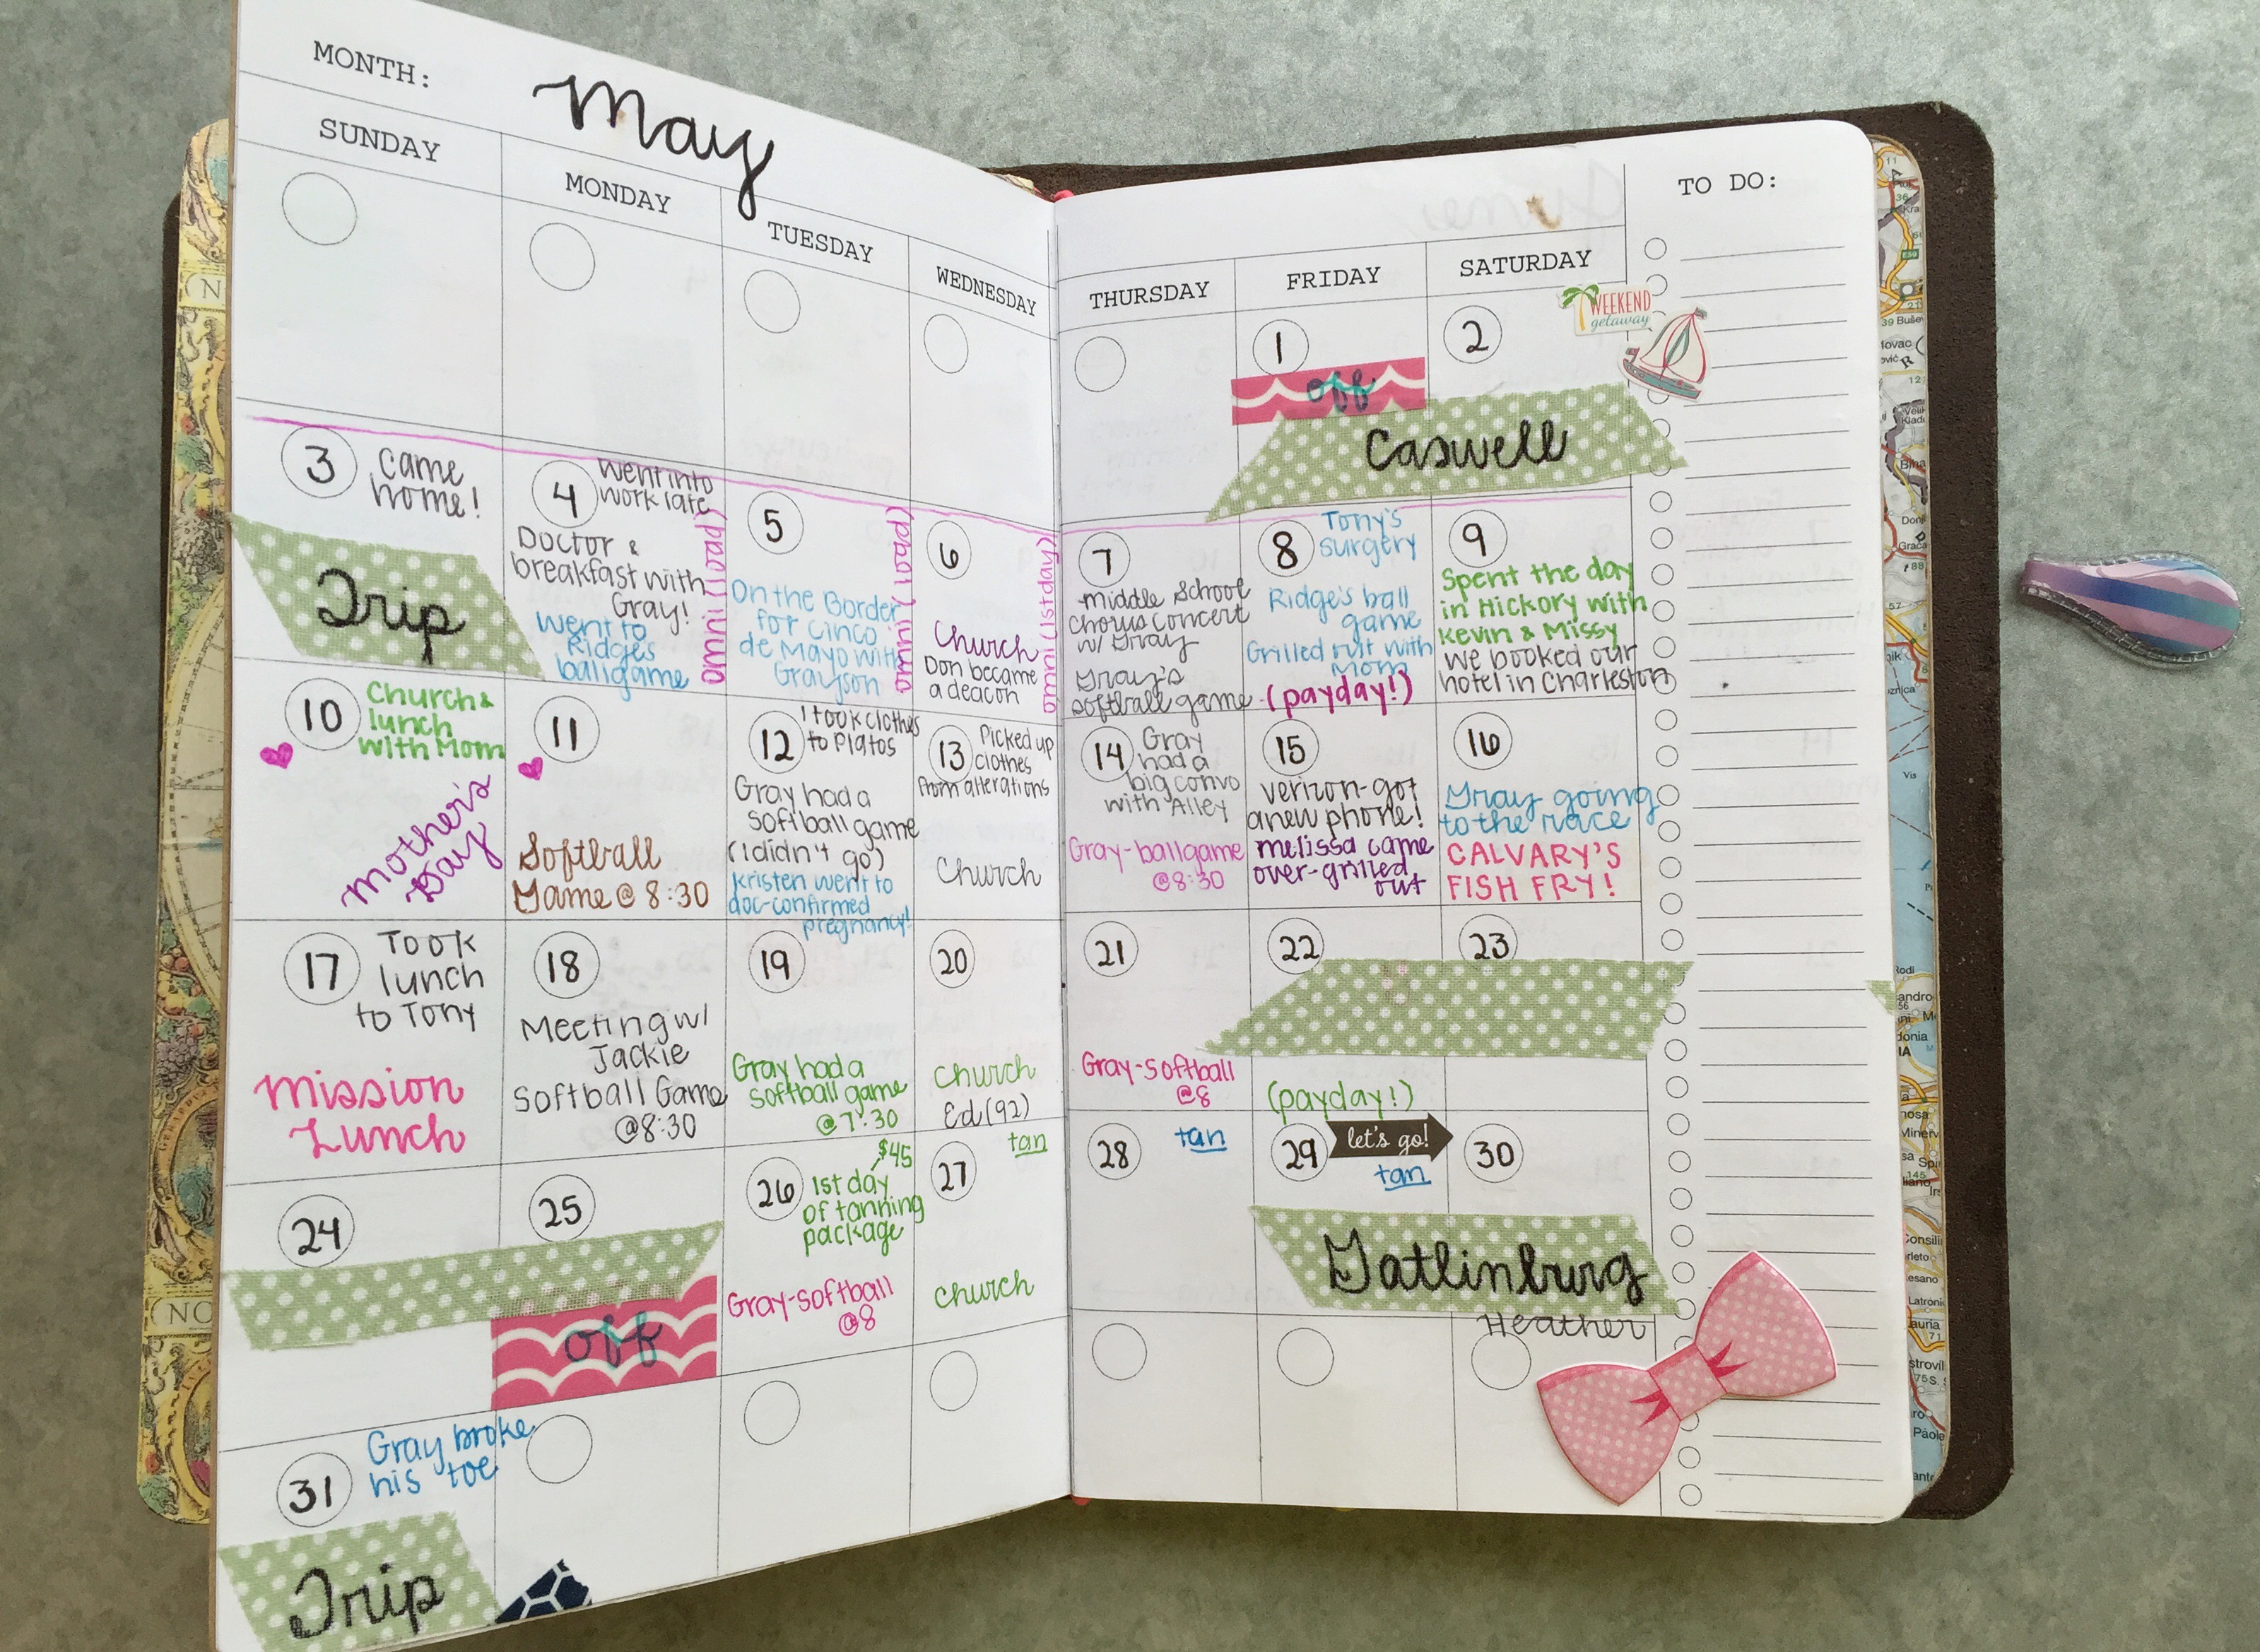 MONTH: May
SUNDAY
MONDAY
TUESDAY
WEDNESDAY
THURSDAY
FRIDAY
SATURDAY
TO DO:
1
off
2
WEEKEND
getaway
Caswell
3
Came
home!
Trip
4
Went into
work late
Doctor &
breakfast with
Gray!
Went to
Ridges
ballgame
omni (1 load)
5
On the Border
for Cinco
de Mayo with
Grayson
omni (1 load)
6
Church
Don became
a deacon
omni (1st day)
7
middle School
chorus concert
w/ Gray
Gray's
softball game
8
Tony's
surgery
Ridge's ball
game
Grilled out with
Mom
(payday!)
9
Spent the day
in Hickory with
Kevin & Missy
we booked our
hotel in Charleston
10
Church &
lunch
with Mom
Mother's
Day
11
Softball
Game @ 8:30
12
I took clothes
to Platos
Gray had a
softball game
(I didn't go)
Kristen went to
doc-confirmed
pregnancy!
13
Picked up
clothes
from alterations
Church
14
Gray
had a
big convo
with Alley
Gray-ballgame
@8:30
15
verizon-got
a new phone!
melissa came
over-grilled
out
16
Gray going
to the race
CALVARY'S
FISH FRY!
17
Took
lunch
to Tony
Mission
Lunch
18
Meeting w/
Jackie
Softball Game
@8:30
19
Gray had a
softball game
@ 7:30
20
Church
Ed (92)
21
Gray-softball
@8
22
(payday!)
23
24
25
off
26
$45
1st day
of tanning
package
Gray-softball
@8
27
tan
church
28
tan
29
let's go!
tan
30
Gatlinburg
Heather
31
Gray broke
his toe
Trip